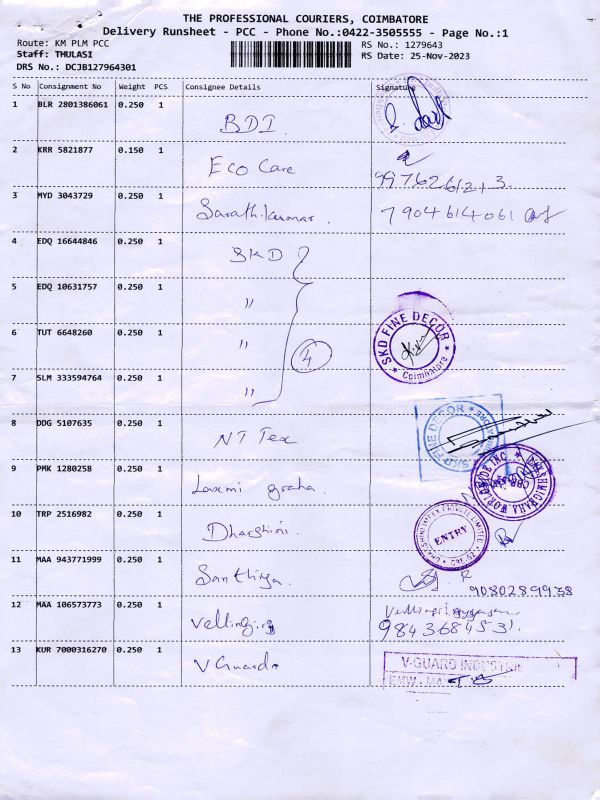 THE PROFESSIONAL COURIERS, COIMBATORE
Delivery Runsheet - PCC - Phone No.:0422-3505555 - Page No.:1
Route: KM PLM PCC
RS No.: 1279643
Staff: THULASI
RS Date: 25-Nov-2023
DRS No.: DCJB127964301
S No Consignment No Weight PCS Consignee Details Signature
1 BLR 2801386061 0.250 1 BDI
2 KRR 5821877 0.150 1 Eco Care 9976261213
3 MYD 3043729 0.250 1 Sarath kumar 7904614061
4 EDQ 16644846 0.250 1 SKD
5 EDQ 10631757 0.250 1 "
6 TUT 6648260 0.250 1 "
4
SKD FINE DECOR
Coimbatore
7 SLM 333594764 0.250 1 "
8 DDG 5107635 0.250 1 NT Tex
9 PMK 1280258 0.250 1 Laxmi graha
10 TRP 2516982 0.250 1 Dharshini
ENTRY
11 MAA 943771999 0.250 1
9080289938
12 MAA 106573773 0.250 1
9843684531
13 KUR 7000316270 0.250 1 V Guard
V-GUARD